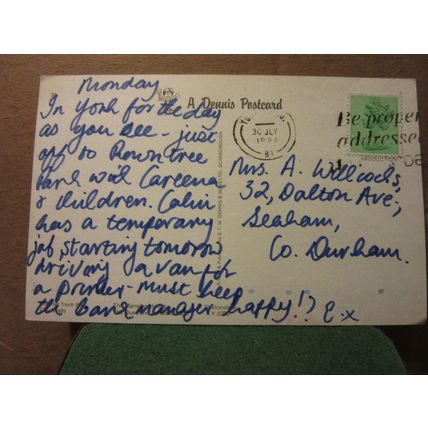 Monday
In York for the day
as you see - just
off to Rowntree
Park with Careena
& children. Colin
has a temporary
job starting tomorrow
driving a van for
a printer - must keep
the bank manager happy!? E.x
A Dennis Postcard
30 JLY
Be proper
addressed
Mrs. A. Willcocks,
32, Dalton Ave,
Seaham,
Co. Durham.